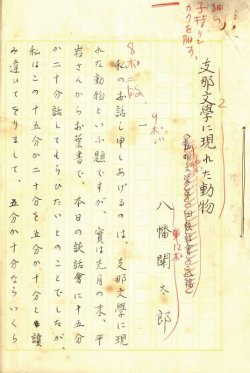 支那文學に現れた動物
八幡關太郎
私のお話し申しあげるのは、支那文學に現
れた動物といふ題ですが、實は先月の末、平
岩さんからお葉書で、本日の談話會に十五分
か二十分話してもらひたいとのことでしたが、
私はこの十五分か二十分を五分か十分と讀
み違ひてをりまして、五分か十分ならいくら